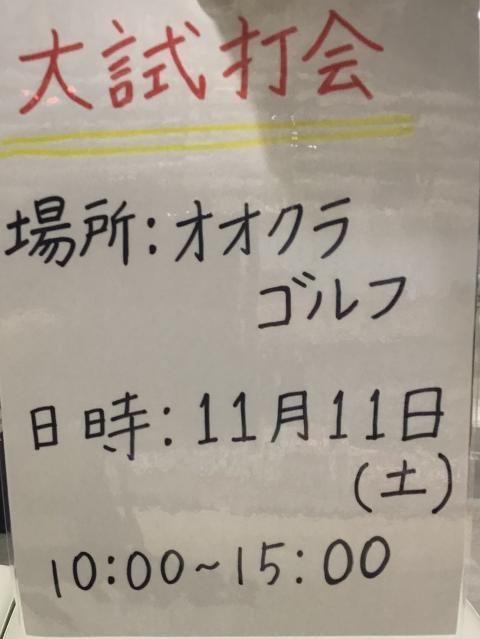 大試打会
場所:オオクラ
ゴルフ
日時:11月11日
(土)
10:00~15:00